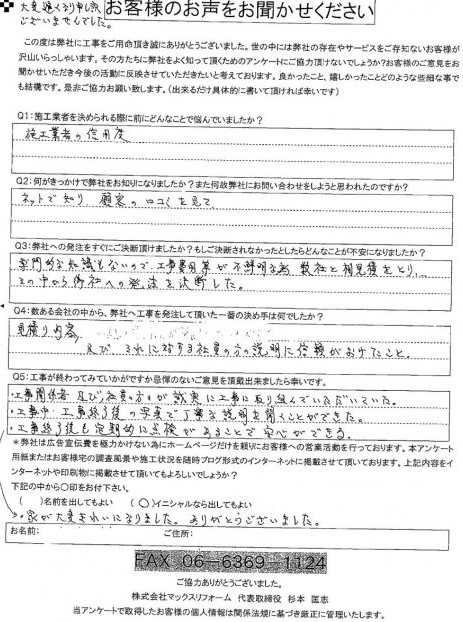 大変遅くなり申し訳
ございませんでした
お客様のお声をお聞かせください
この度は弊社に工事をご用命頂き誠にありがとうございました。世の中には弊社の存在やサービスをご存知ないお客様が
沢山いらっしゃいます。その方たちに弊社をよく知って頂くためのアンケートにご協力頂けないでしょうか?お客様のご意見をお
聞かせいただき今後の活動に反映させていただきたいと考えております。良かったこと、嬉しかったことどのような些細な事で
も結構です。是非ご協力お願い致します。(出来るだけ具体的に書いて頂ければ幸いです)
Q1:施工業者を決められる際に前にどんなことで悩んでいましたか?
施工業者の信用度
Q2:何がきっかけで弊社をお知りになりましたか?また何故弊社にお問い合わせをしようと思われたのですか?
ネットで知り、顧客の口コミを見て
Q3:弊社への発注をすぐにご決断頂けましたか?もしご決断されなかったとしたらどんなことが不安になりましたか?
専門的な知識もないので、工事費用等が不鮮明な為、数社と相見積をとり、
その中から御社への発注を決断した。
Q4:数ある会社の中から、弊社へ工事を発注して頂いた一番の決め手は何でしたか?
見積り内容
及び、それに対する社員の方の説明に信頼がおけたこと。
Q5:工事が終わってみていかがですか忌憚のないご意見を頂戴出来ましたら幸いです。
・工事関係者及び社員の方々が誠実に工事に取り組んでいただいていた。
・工事中・工事終了後の写真で丁寧な説明を聞くことができた。
・工事終了後も定期的に点検があることで安心ができる。
*弊社は広告宣伝費を極力かけない為にホームページだけを頼りにお客様への営業活動を行っております。本アンケート
用紙またはお客様宅の調査風景や施工状況を随時ブログ形式のインターネットに掲載させて頂いております。上記内容をイ
ンターネットや印刷物に掲載させて頂いてもよろしいでしょうか?
下記の中から○印をお付下さい。
( )名前を出してもよい (○)イニシャルなら出してもよい
・家が大変きれいになりました。ありがとうございました。
お名前: ご住所:
FAX 06-6369-1124
ご協力ありがとうございました。
株式会社マックスリフォーム 代表取締役 杉本 匡志
当アンケートで取得したお客様の個人情報は関係法規に基づき厳正に管理いたします。